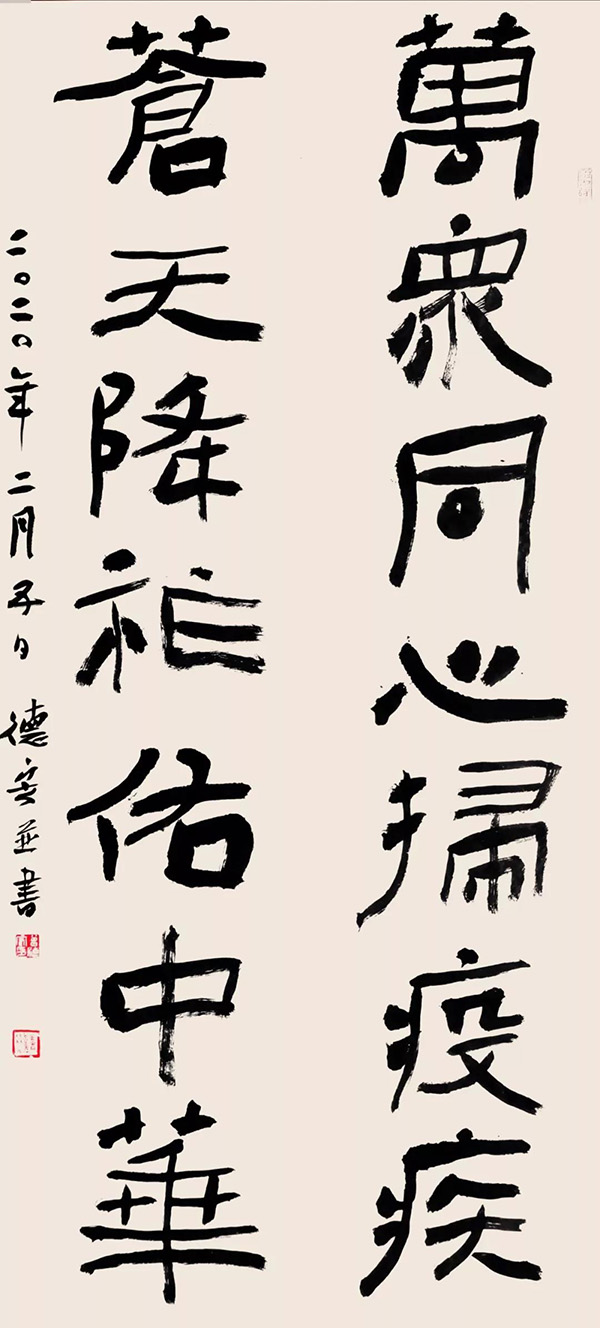 萬眾同心掃疫疾
蒼天降祉佑中華
二〇二〇年二月五日 德安並書